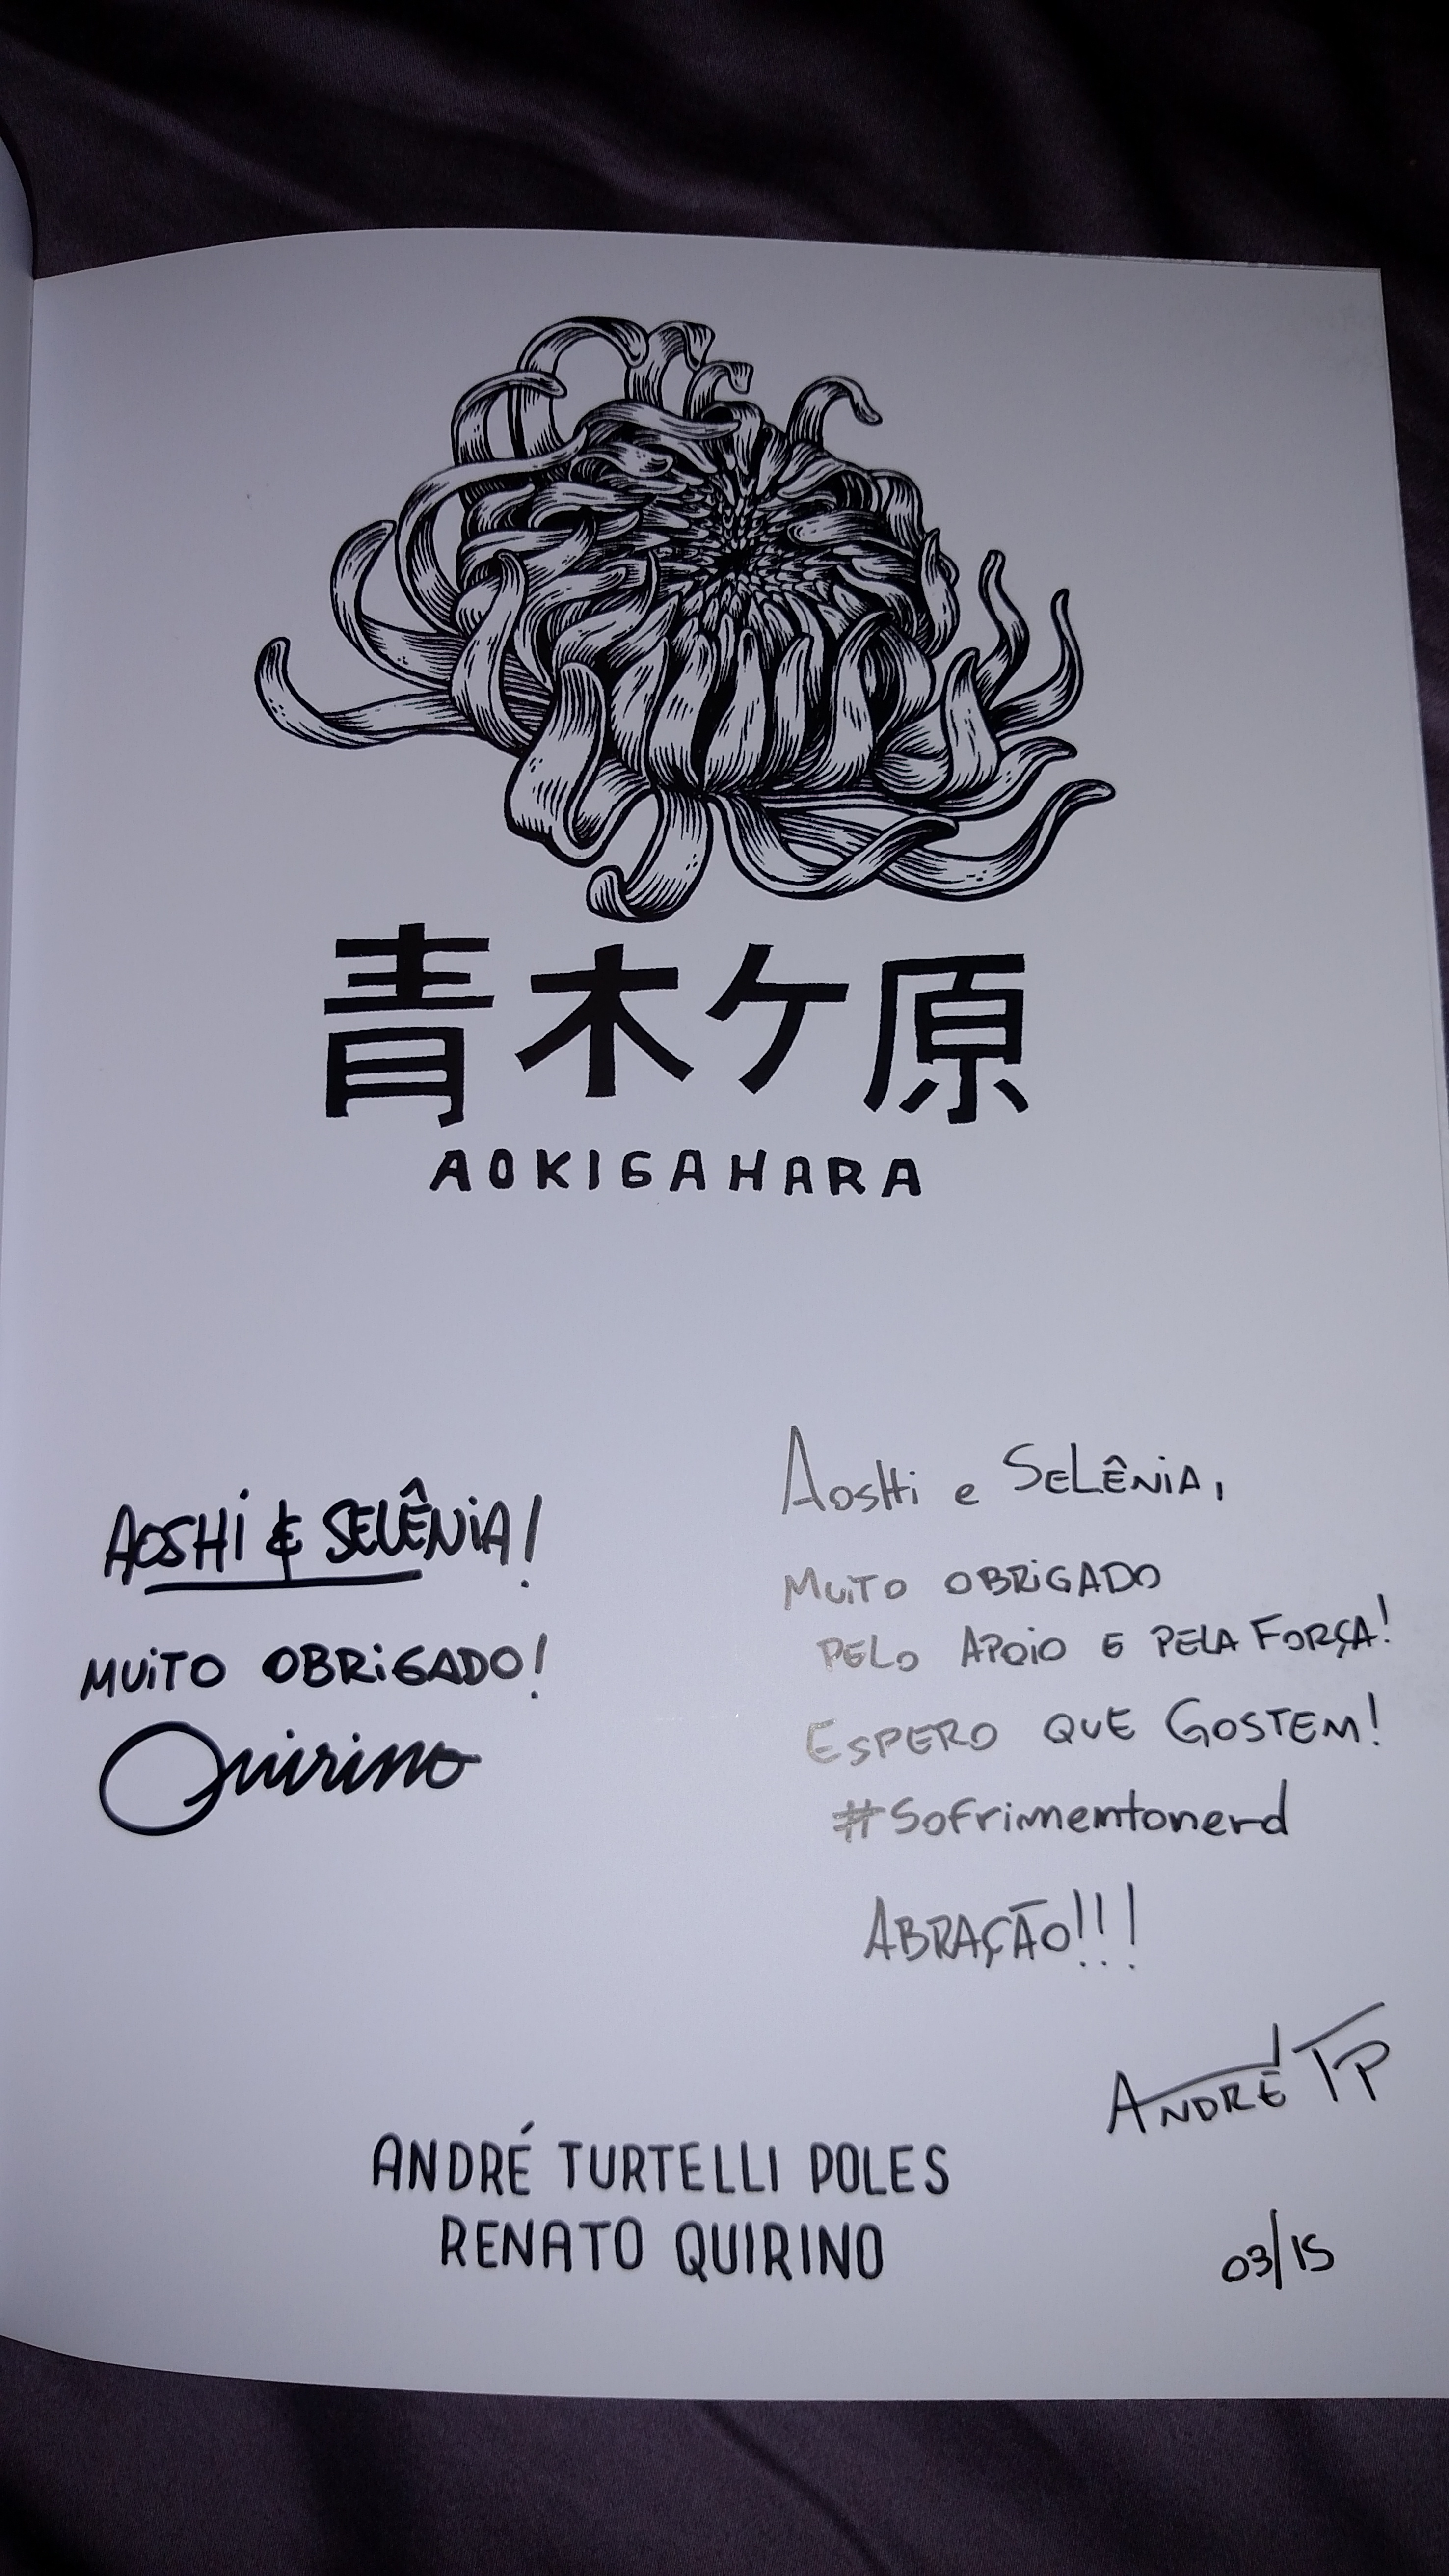 青木ケ原
AOKIGAHARA
AOSHI & SELÊNIA!
MUITO OBRIGADO!
Quirino
AOSHI e SELÊNIA,
MUITO OBRIGADO
PELO APOIO E PELA FORÇA!
ESPERO QUE GOSTEM!
#Sofrimentonerd
ABRAÇÃO!!!
ANDRÉ TP
03/15
ANDRÉ TURTELLI POLES
RENATO QUIRINO